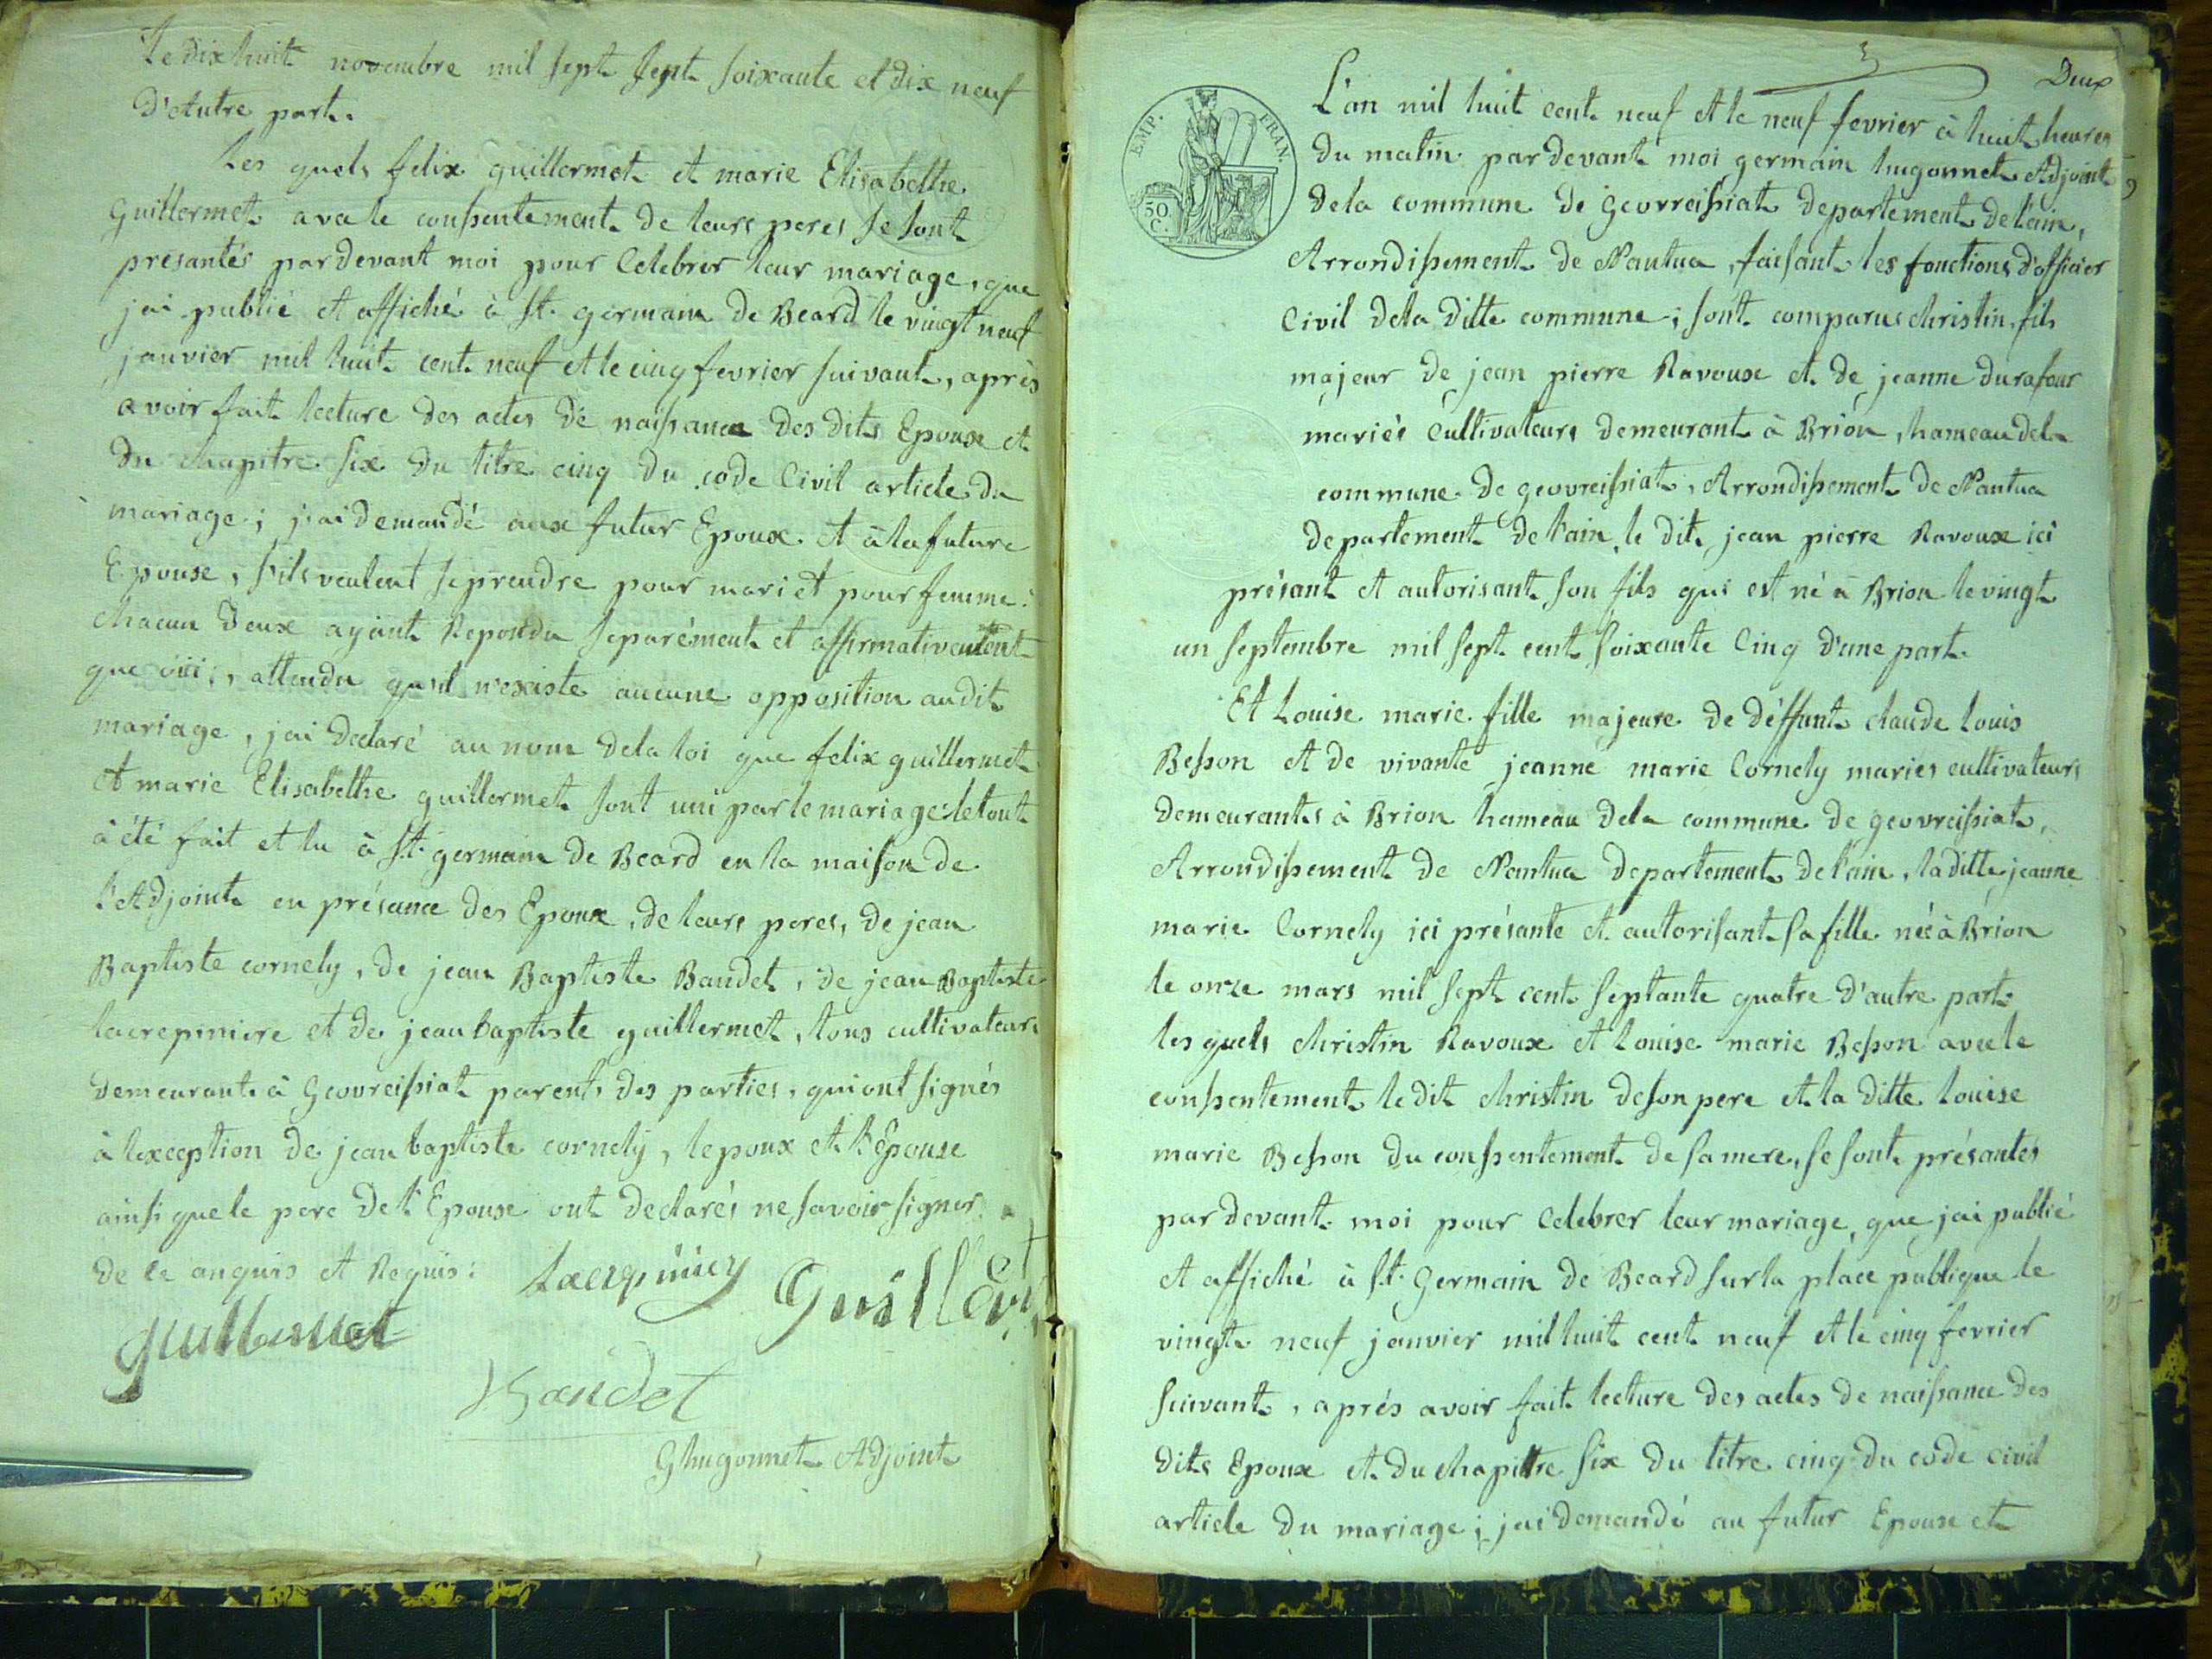 Le dix huit novembre mil sept sept soixante et dix neuf
D'Autre part.
Les quels felix guillermet et marie Elisabethe
Guillermet avec le consentement de leurs peres se sont
presantés pardevant moi pour Celebrer leur mariage, que
jai publié et affiché à St. germain de Beard le vingt neuf
janvier mil huit cent neuf et le cinq fevrier suivant, après
avoir fait lecture des actes de naissance des dits Epoux et
du chapitre six du titre cinq du code Civil article du
mariage; j'ai demandé aux futur Epoux et à la future
Epouse, s'ils veulent se prendre pour mari et pour femme:
chacun d'eux ayant Repondu separément et affirmativement
que oui; attendu qu'il n'existe aucune opposition audit
mariage, jai declaré au nom dela loi que felix guillermet
et marie Elisabethe guillermet sont uni par le mariage: le tout
à été fait et lu à St. germain de Beard en la maison de
l'Adjoint en présance des Epoux, de leurs peres, de jean
Baptiste cornely, de jean Baptiste Baudet, de jean Baptiste
lacrepiniere et de jean baptiste guillermet, tous cultivateurs
demeurant à Geovreissiat parents des parties, qui ont signés
à lexception de jean baptiste cornely, lepoux et l'Epouse
ainsi que le pere de l'Epouse ont declarés ne savoir signer
de ce enquis et Requis:
Guillermet
guillermet
Baudet
Ghugonnet Adjoint
Deux
L'an mil huit cent neuf et le neuf fevrier à huit heures
du matin pardevant moi germain hugonnet Adjoint
dela commune de geovreissiat departement de l'ain,
Arrondissement de Nantua, faisant les fonctions d'officier
Civil dela ditte commune; sont comparus christin, fils
majeur de jean pierre Ravoux et de jeanne durafour
mariés Cultivateurs demeurant à Brion, hameau dela
commune de geovreissiat, Arrondissement de Nantua
departement de l'ain, le dit jean pierre Ravoux ici
présant et autorisant son fils qui est né à Brion le vingt
un septembre mil sept cent soixante Cinq d'une part.
Et Louise marie fille majeure de déffunt claude louis
Besson et de vivante jeanne marie Cornely mariés cultivateurs
demeurants à Brion hameau dela commune de geovreissiat,
Arrondissement de Nantua departement de l'ain, la ditte jeanne
marie Cornely ici présante et autorisant sa fille née à Brion
le onze mars mil sept cent septante quatre d'autre part.
les quels christin Ravoux et Louise marie Besson avec le
consentement le dit christin de son pere et la ditte louise
marie Besson du consentement de sa mere, se sont présantés
par devant moi pour celebrer leur mariage, que jai publié
et affiché à St. Germain de Beard sur la place publique le
vingt neuf janvier mil huit cent neuf et le cinq fevrier
suivant, aprés avoir fait lecture des actes de naissance des
dits Epoux et du chapittre six du titre cinq du code civil
article du mariage; jai demandé au futur Epoux et
EMP. FRAN.
50 C.